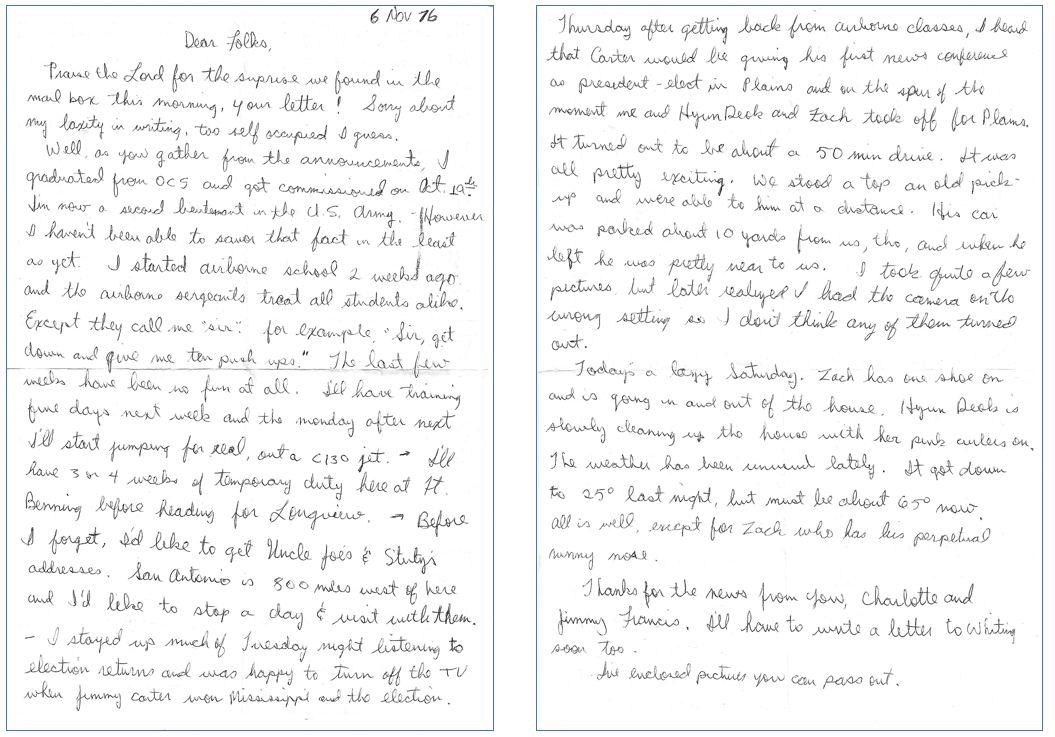 6 Nov 76
Dear Folks,
Praise the Lord for the suprise we found in the
mail box this morning, your letter! Sorry about
my laxity in writing, too self occupied I guess.
Well, as you gather from the announcements, I
graduated from OCS and got commissioned on Oct 19th
I'm now a second lieutenant in the U.S. Army. - However
I haven't been able to savor that fact in the least
as yet. I started airborne school 2 weeks ago
and the airborne sergeants treat all students alike.
Except they call me "sir": for example, "Sir, get
down and give me ten push ups." The last few
weeks have been no fun at all. I'll have training
five days next week and the monday after next
I'll start jumping for real, out a C130 jet. - I'll
have 3 or 4 weeks of temporary duty here at Ft.
Benning before heading for Longview. - Before
I forget, I'd like to get Uncle Joe's &
addresses. San Antonio is 800 miles west of here
and I'd like to stop a day & visit with them.
- I stayed up much of Tuesday night listening to
election returns and was happy to turn off the TV
when Jimmy Carter won Mississippi and the election.
Thursday after getting back from airborne classes, I heard
that Carter would be giving his first news conference
as president-elect in Plains and on the spur of the
moment me and Hyun Deok and Zach took off for Plains.
It turned out to be about a 50 min drive. It was
all pretty exciting. We stood a top an old pick-
up and were able to him at a distance. His car
was parked about 10 yards from us, tho, and when he
left he was pretty near to us. I took quite a few
pictures, but later realized I had the camera on the
wrong setting so I don't think any of them turned
out.
Today's a lazy Saturday. Zach has one shoe on
and is going in and out of the house. Hyun Deok is
slowly cleaning up the house with her pink curlers on.
The weather has been unusual lately. It got down
to 25° last night, but must be about 65° now.
all is well, except for Zach who has his perpetual
runny nose.
Thanks for the news from you, Charlotte and
Jimmy Francis. I'll have to write a letter to Whiting
soon too.
I've enclosed pictures you can pass out.